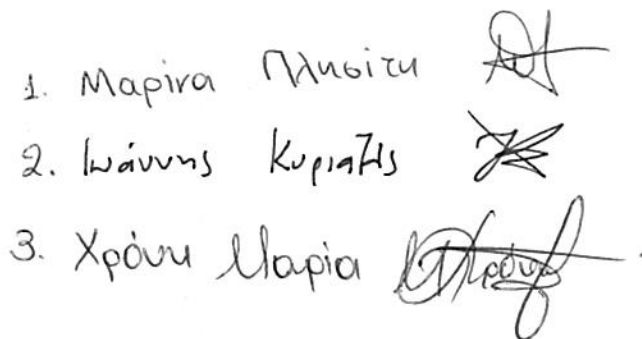 1. Μαρίνα Πλησίτη
2. Ιωάννης Κυριαζής
3. Χρόνη Μαρία